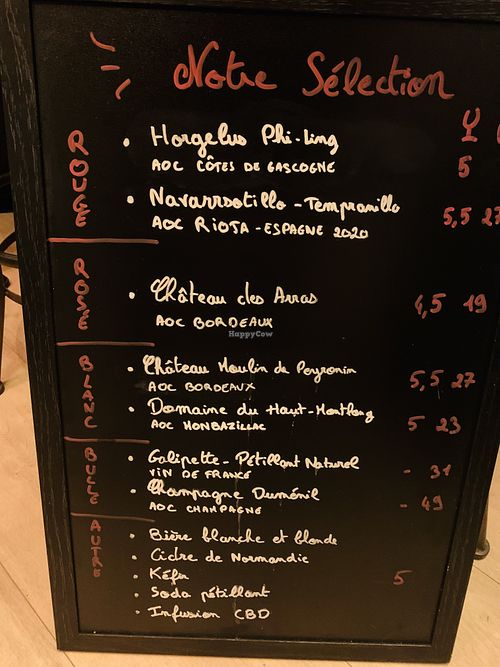 Notre Sélection
ROUGE
• Horgelus Phi-ling 5
AOC CÔTES DE GASCOGNE
• Navarrsotillo - Tempranillo 5,5 27
AOC RIOJA - ESPAGNE 2020
ROSÉ
• Château des Arras 4,5 19
AOC BORDEAUX
BLANC
• Château Moulin de Peyronin 5,5 27
AOC BORDEAUX
• Domaine du Haut-Montlong 5 23
AOC MONBAZILLAC
BULLE
• Galipette - Pétillant Naturel - 31
VIN DE FRANCE
• Champagne Duménil - 49
AOC CHAMPAGNE
AUTRE
• Bière blanche et blonde
• Cidre de Normandie
• Kéfir 5
• Soda pétillant
• Infusion CBD
HappyCow